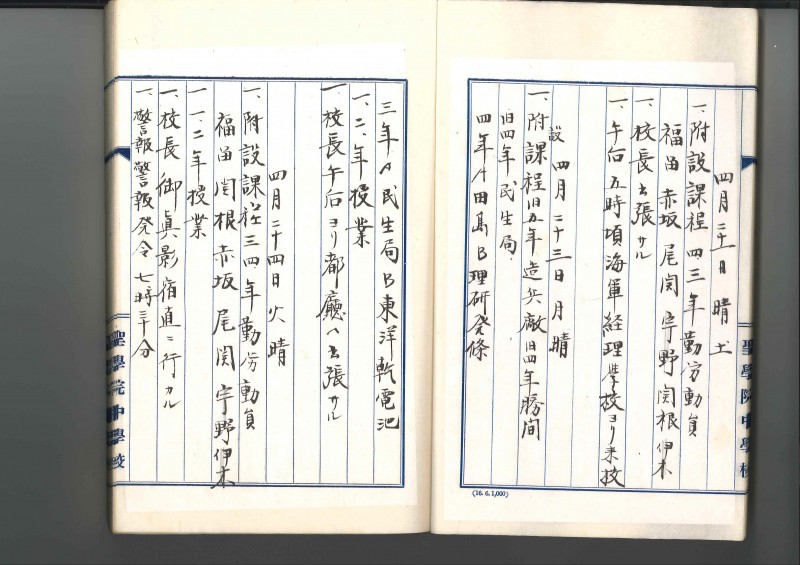 四月二十一日 晴 土
一、附設課程 四三年勤労動員
福畄 赤坂 尾関 宇野 関根 伊木
一、校長出張サル
一、午后五時頃海軍経理学校ヨリ来校
四月二十三日 月 晴
一、附設課程旧五年造兵廠旧四年勝間
旧四年民生局
四年A田島B理研発條
聖学院中学校
(16. 6. 1,000)
三年A民生局B東洋乾電池
一、二年授業
一、校長午后ヨリ都廳ヘ出張サル
四月二十四日 火 晴
一、附設課程三四年勤労動員
福畄 関根 赤坂 尾関 宇野 伊木
一 一、二年授業
一、校長御真影宿直ニ行カル
一、警報警報発令 七時三十分
聖學院中學校